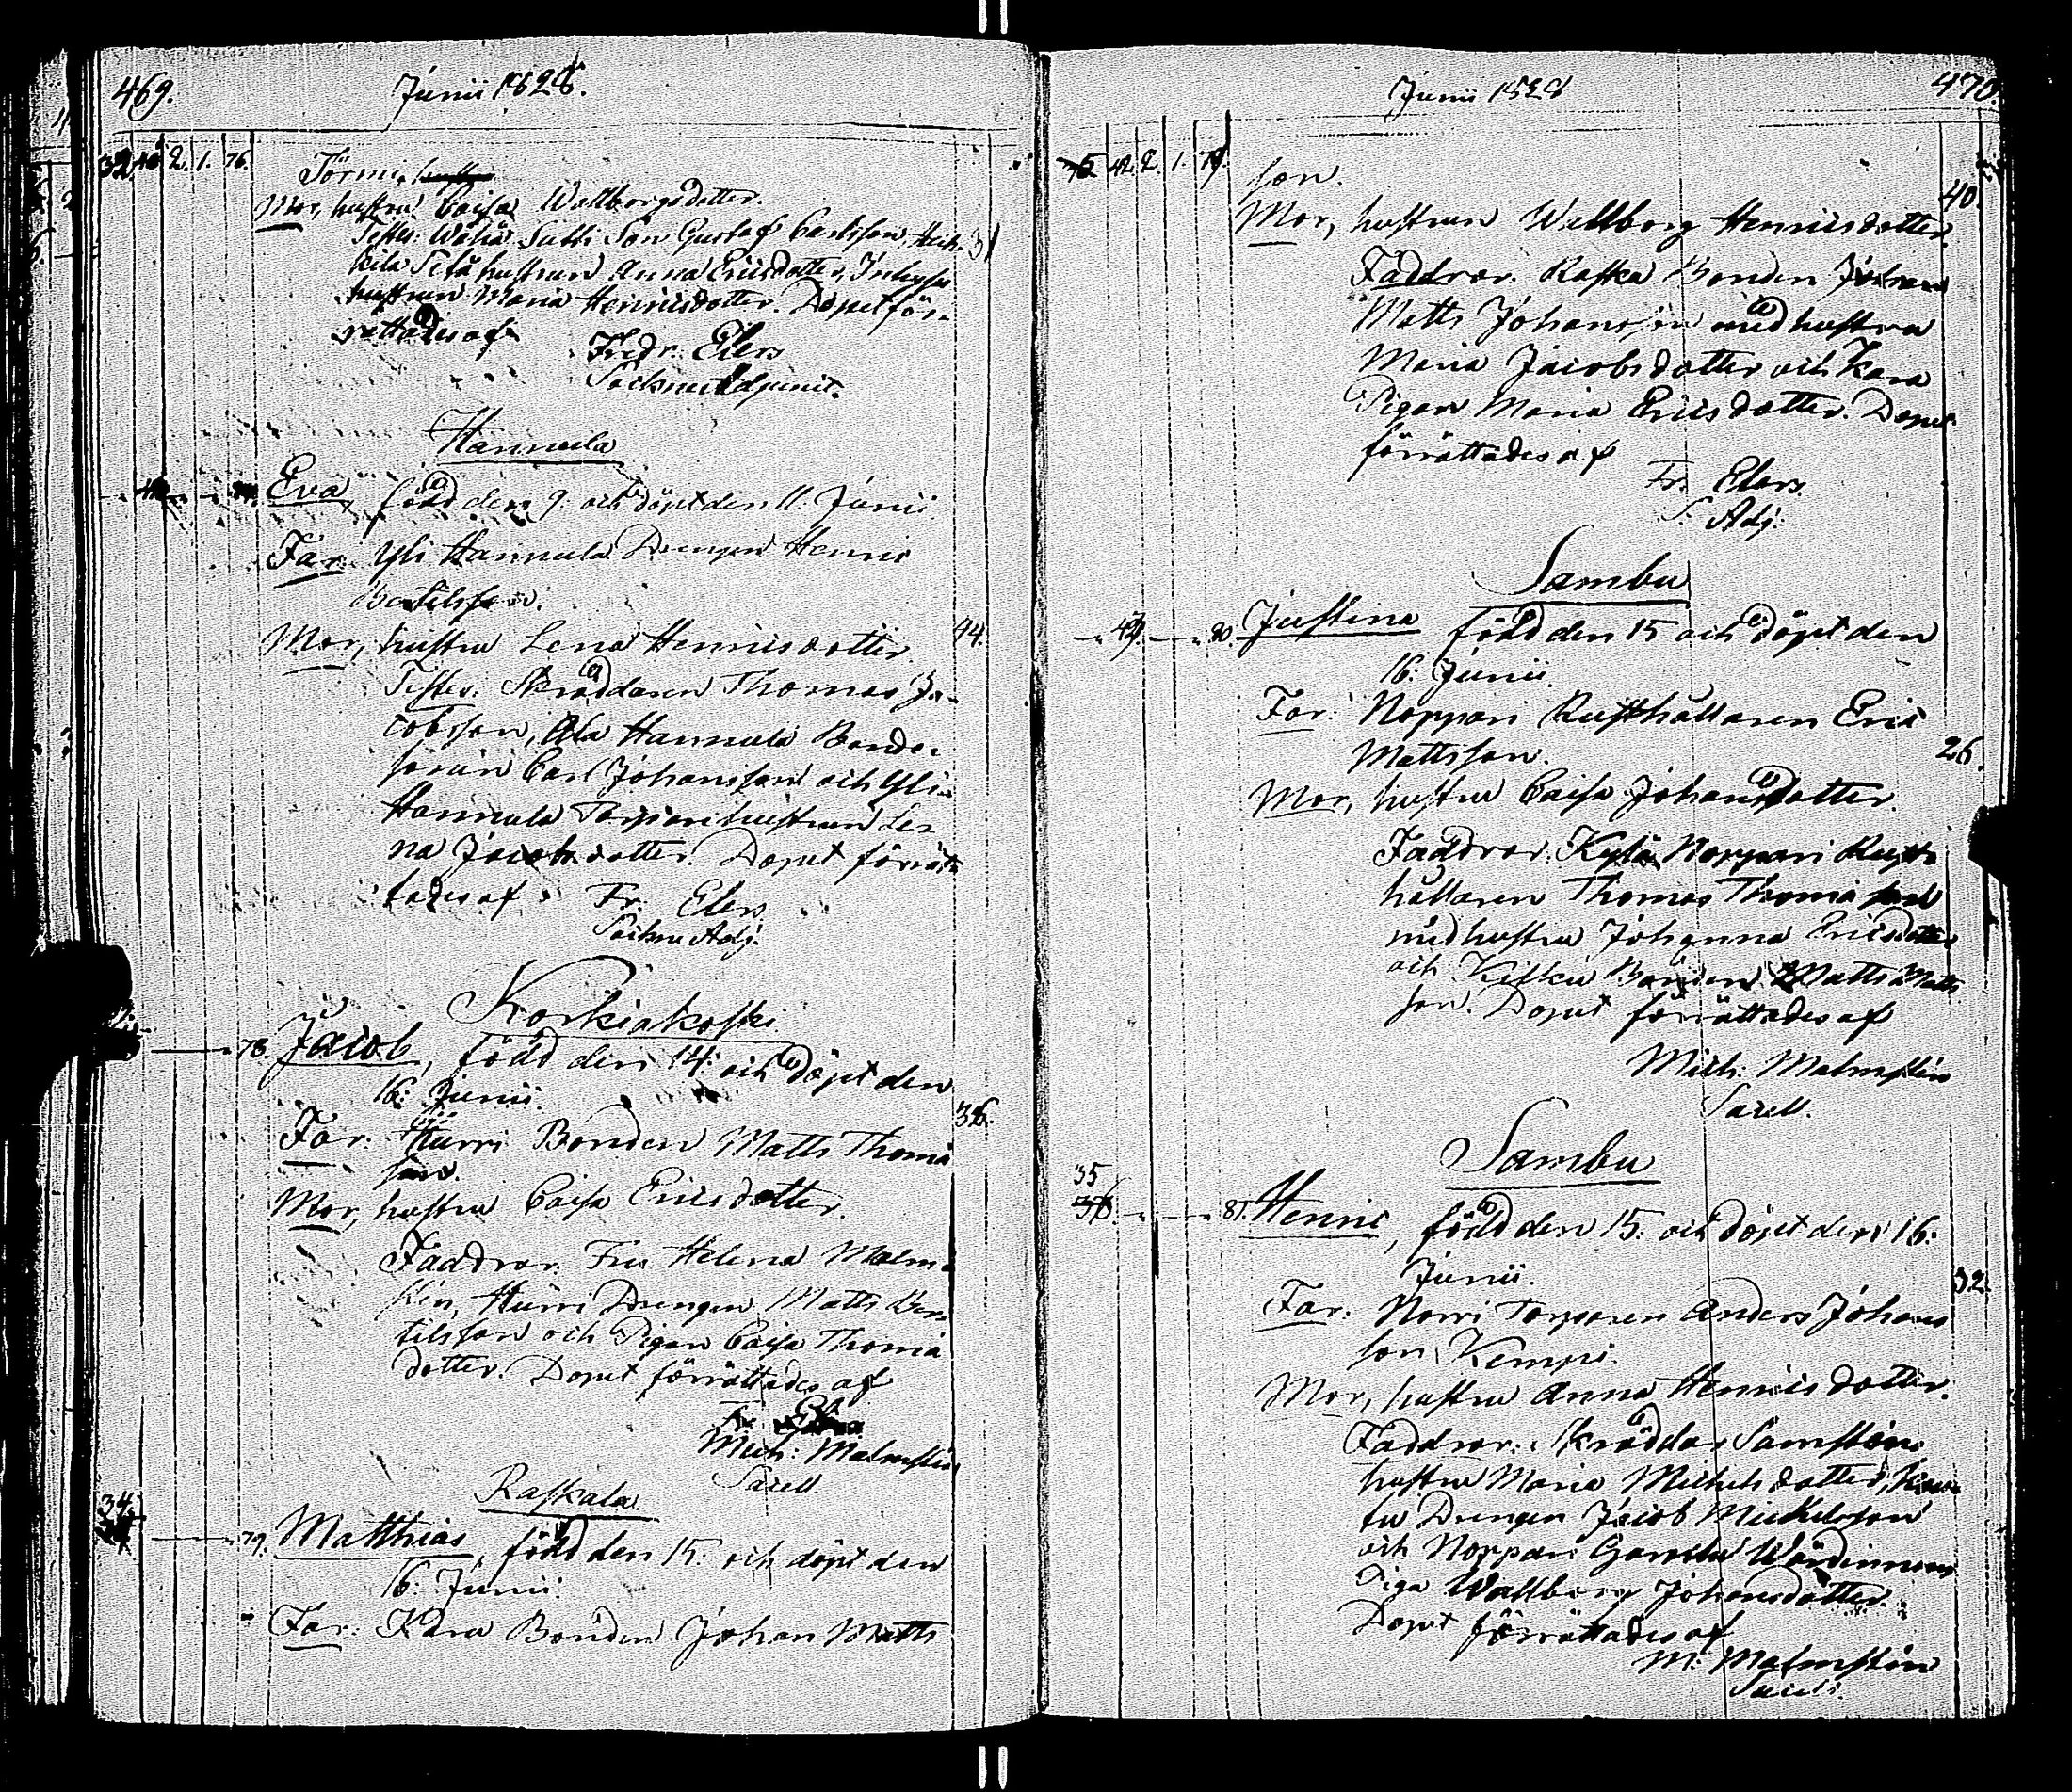 469. Junii 1828.
32. 2. 1. 76. Törmi
Mor, hustru Caisa Wallborgsdotter.
Testes: Gustaf Carlsson, Heik- 31
kilä hustrun Anna Ericsdotter, Inhyses
hustrun Maria Henricsdotter. Dopet för-
rättades af
Fredr. Elers
Sockne Adjunct.
Hannula
Eva, född den 9. och döpt den 11. Junii
Far: Yli Hannula Drengen Henric
Bertilsson.
Mor, hustru Lena Henricsdotter 44.
Testes: Skräddaren Thomas Ja-
cobsson, Ala Hannula Bonde-
sonen Carl Johansson och Yli-
Hannula Torparehustrun Le-
na Jacobsdotter. Dopet förrät-
tades af Fr. Elers
Sockne Adj.
Korkiakoski
78. Jacob, född den 14. och döpt den
16. Junii.
Far: Hurri Bonden Matts Thomæ 36.
son.
Mor, hustru Caisa Ericsdotter.
Faddrar: Fru Helena Malm-
stén, Hurri Drengen Matts Ber-
tilsson och Pigan Caisa Thomæ
dotter. Dopet förrättades af
Mich: Malmstén
Sacell.
Raskala
34.
79. Matthias, född den 15. och döpt den
16. Junii.
Far: Kara Bonden Johan Matts
Junii 1828 470.
42. 2. 1. 79. son.
Mor, hustrun Wallborg Henricsdotter 40.
Faddrar: Raska Bonden
Matts Johansson med hustru
Maria Jacobsdotter och Kara
Pigan Maria Ericsdotter. Dopet
förrättades af
Fr. Elers
S. Adj.
Sambu
80. Justina född den 15 och döpt den
16. Junii.
Far: Noppari Rusthållaren Eric
Mattsson. 26.
Mor, hustru Caisa Johansdotter.
Faddrar: Kylä Noppari Rust-
hållaren Thomas Thomæ son
med hustru Johanna Ericsdotter
och Bonden Matts Matts
son. Dopet förrättades af
Mich: Malmstén
Sacell.
Sambu
35
81. Henric, född den 15. och döpt den 16.
Junii. 32.
Far: Norri Torparen Anders Johans
son Kempi.
Mor, hustru Anna Henricsdotter.
Faddrar: Skräddar Samsténs
hustru Maria Michelsdotter,
Drengen Jacob Michelsson
och Noppari Gamla Wärdinnans
Piga Wallborg Johansdotter.
Dopet förrättades af
M: Malmstén
Sacell.